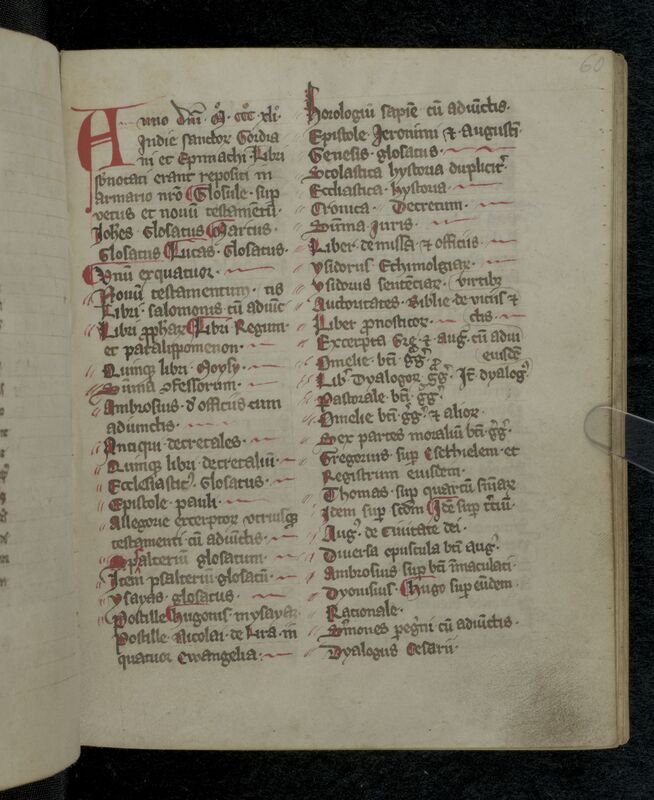 60
Anno dm̄i · M̊ · CCC̊ xlı̊ ·
Indie sanctor Gordia
ni et Epimachi Libri
sb̄notati erant repositi in
armario nr̄o Glosule · sup̄
vetus et nouū testamētū ·
Johēs · Glosatus Marcus ·
Glosatus Lucas · Glosatus ·
Vnū exquatuor · —
Nouū testamentum · tis
Libri · salomonis cū adiūc
Libri ꝓphar Libri Regum
et paralippomenon · —
Quinqꝫ libri · Moysy · —
Sūma ꝯfessorum · —
Ambrosius · d' officiis cum
adiunctis · —
Antiqui decretales · —
Quinqꝫ libri · decretaliū —
Ecclesiasticꝰ · Glosatus · —
Epistole · pauli · —
Allegorie excerptor vtriusqꝫ
testamenti cū adiūctis · —
Spalteriū glosatum · —
Item psalteriū glosatū · —
Ysayas · glosatus · —
Postille Hugonis inysayaꝫ
Postille · Nicolai · de Lira · in
quatuor ewangelia · —
Horologiū sapiē cū adiūctis ·
Epistole Jeronimi ⁊ Augustī
Genesis glosatus · —
Scolastica hystoria duplicit̄ ·
Eccl̄iastica · hystoria · —
Cronica · Decretum · —
Sūma Juris · —
Liber · de missa · ⁊ officiis · —
ysidorus Ethimolgiar · —
ysidorus sentētiar · virtibꝫ
Auctoritates · Biblie · de viciis ⁊
Liber ꝓnosticor · — ctis · —
Excerpta Grḡ · ⁊ Auḡ · cū adiu
Omelie · bt̄i · gḡ · eiusdē
Libꝰ Dyalogor gḡ · Jt̄ dyaloḡ
Pastorale · bt̄i · gḡ ·
Omelie · bt̄i gḡ · ⁊ alior ·
Sex partes moraliū bt̄i · gḡ ·
Gregorius sup̄ Esethielem · et
Registrum eiusdem ·
Thomas · sup̄ quartū sn̄iar
Idem sup̄ scd̄m Idē sup̄ t̄ciū ·
Auḡ · de Ciuitate dei ·
Diuersa opuscula bt̄i auḡ ·
Ambrosius sup̄ bt̄i īmaculati ·
Dyonisius · Hugo sup̄ eūdem ·
Rationale ·
Sm̄ones ꝑeḡni cū adiūctis ·
Dyalogus Cesarii ·